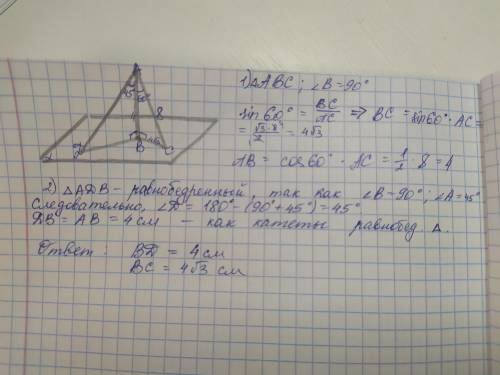 A
45° 60°
4 8
D B C
α
1) △ABC; ∠B=90°
sin60° = BC/AC => BC = sin60°·AC=
= √3·8/2 = 4√3
AB = cos60°·AC = 1/2·8=4
2) △ADB – равнобедренный, так как ∠B=90°; ∠A=45°
следовательно, ∠D=180°-(90°+45°)=45°
DB=AB=4см – как катеты равнобед. △.
Ответ: BD = 4см
BC = 4√3 см